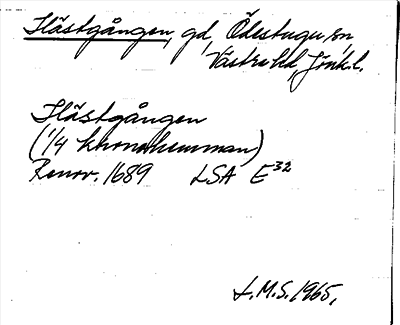 Hästgången, gd, Ödestugu sn
Västra hd, Jönk.l.
Hästgången
(1/4 kronohemman)
Renov. 1689 LSA E32
L.M.S. 1965.